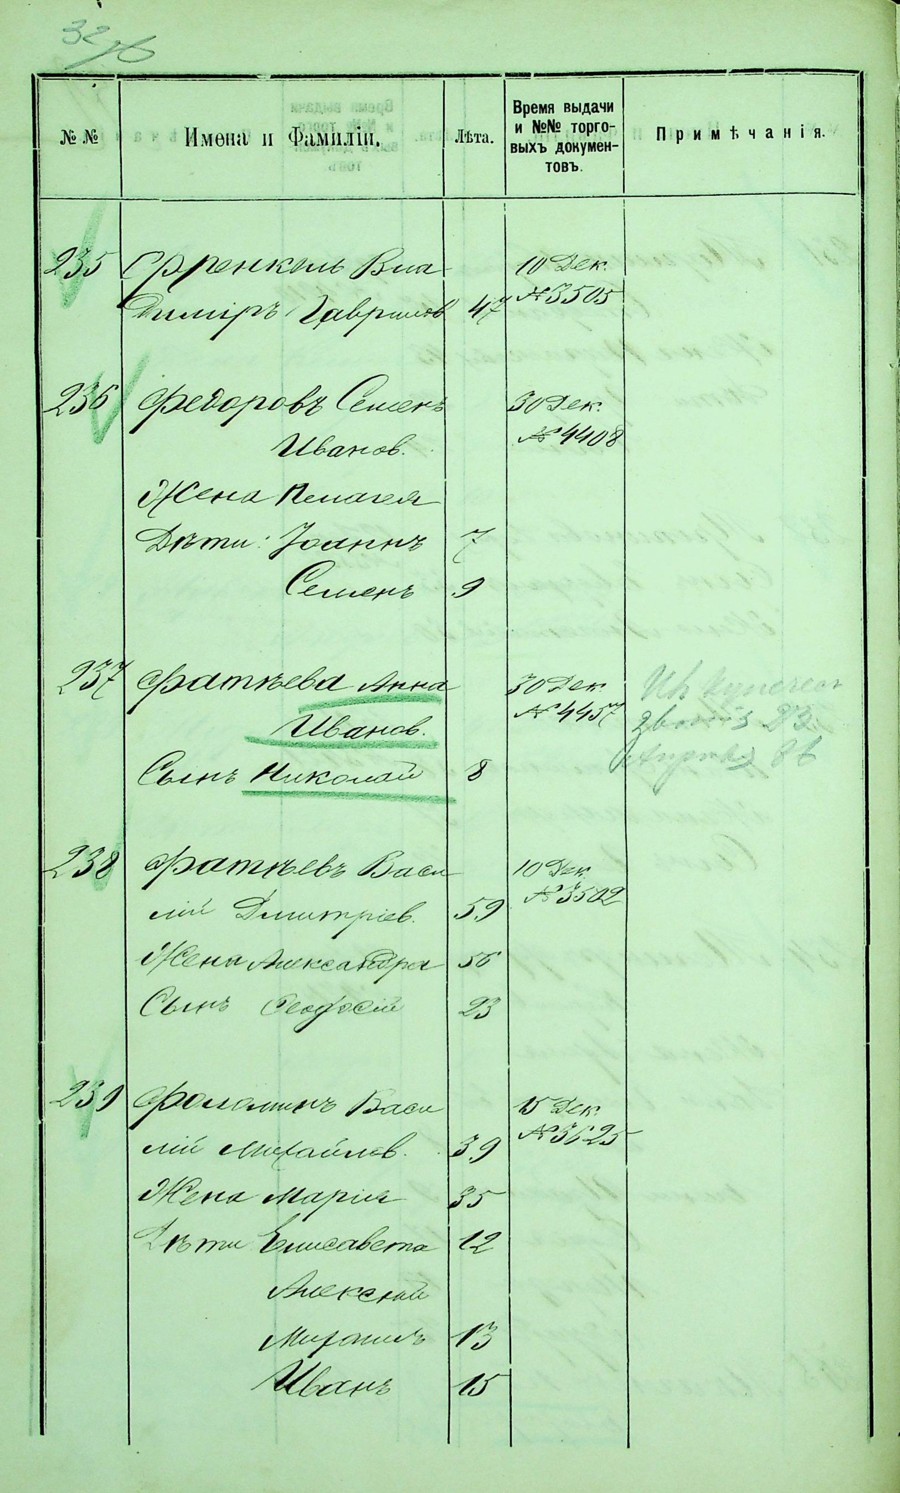 32
№ №
Имена и Фамиліи.
Лѣта.
Время выдачи
и №№ торго-
выхъ докумен-
товъ.
Примѣчанія.
235 Френкель Вла- 10 Дек.
димiръ Гаврилов 47 №3505
236 Федоровъ Семенъ 30 Дек.
Иванов. №4408
Жена Пелагея
Дѣти: Іоаннъ 7
Семенъ 9
237 Фатѣева Анна 30 Дек
Иванов. №4457
Сынъ Николай 8
238 Фатѣевъ Васи 10 Дек
лій Дмитріев. 59 №3502
Жена Александра 56
Сынъ Феодосій 23
239 Фоломинъ Васи 15 Дек.
лій Михайлов. 39 №3625
Жена Марія 35
Дѣти Елисавета 12
Алексѣй
Михаилъ 13
Иванъ 15